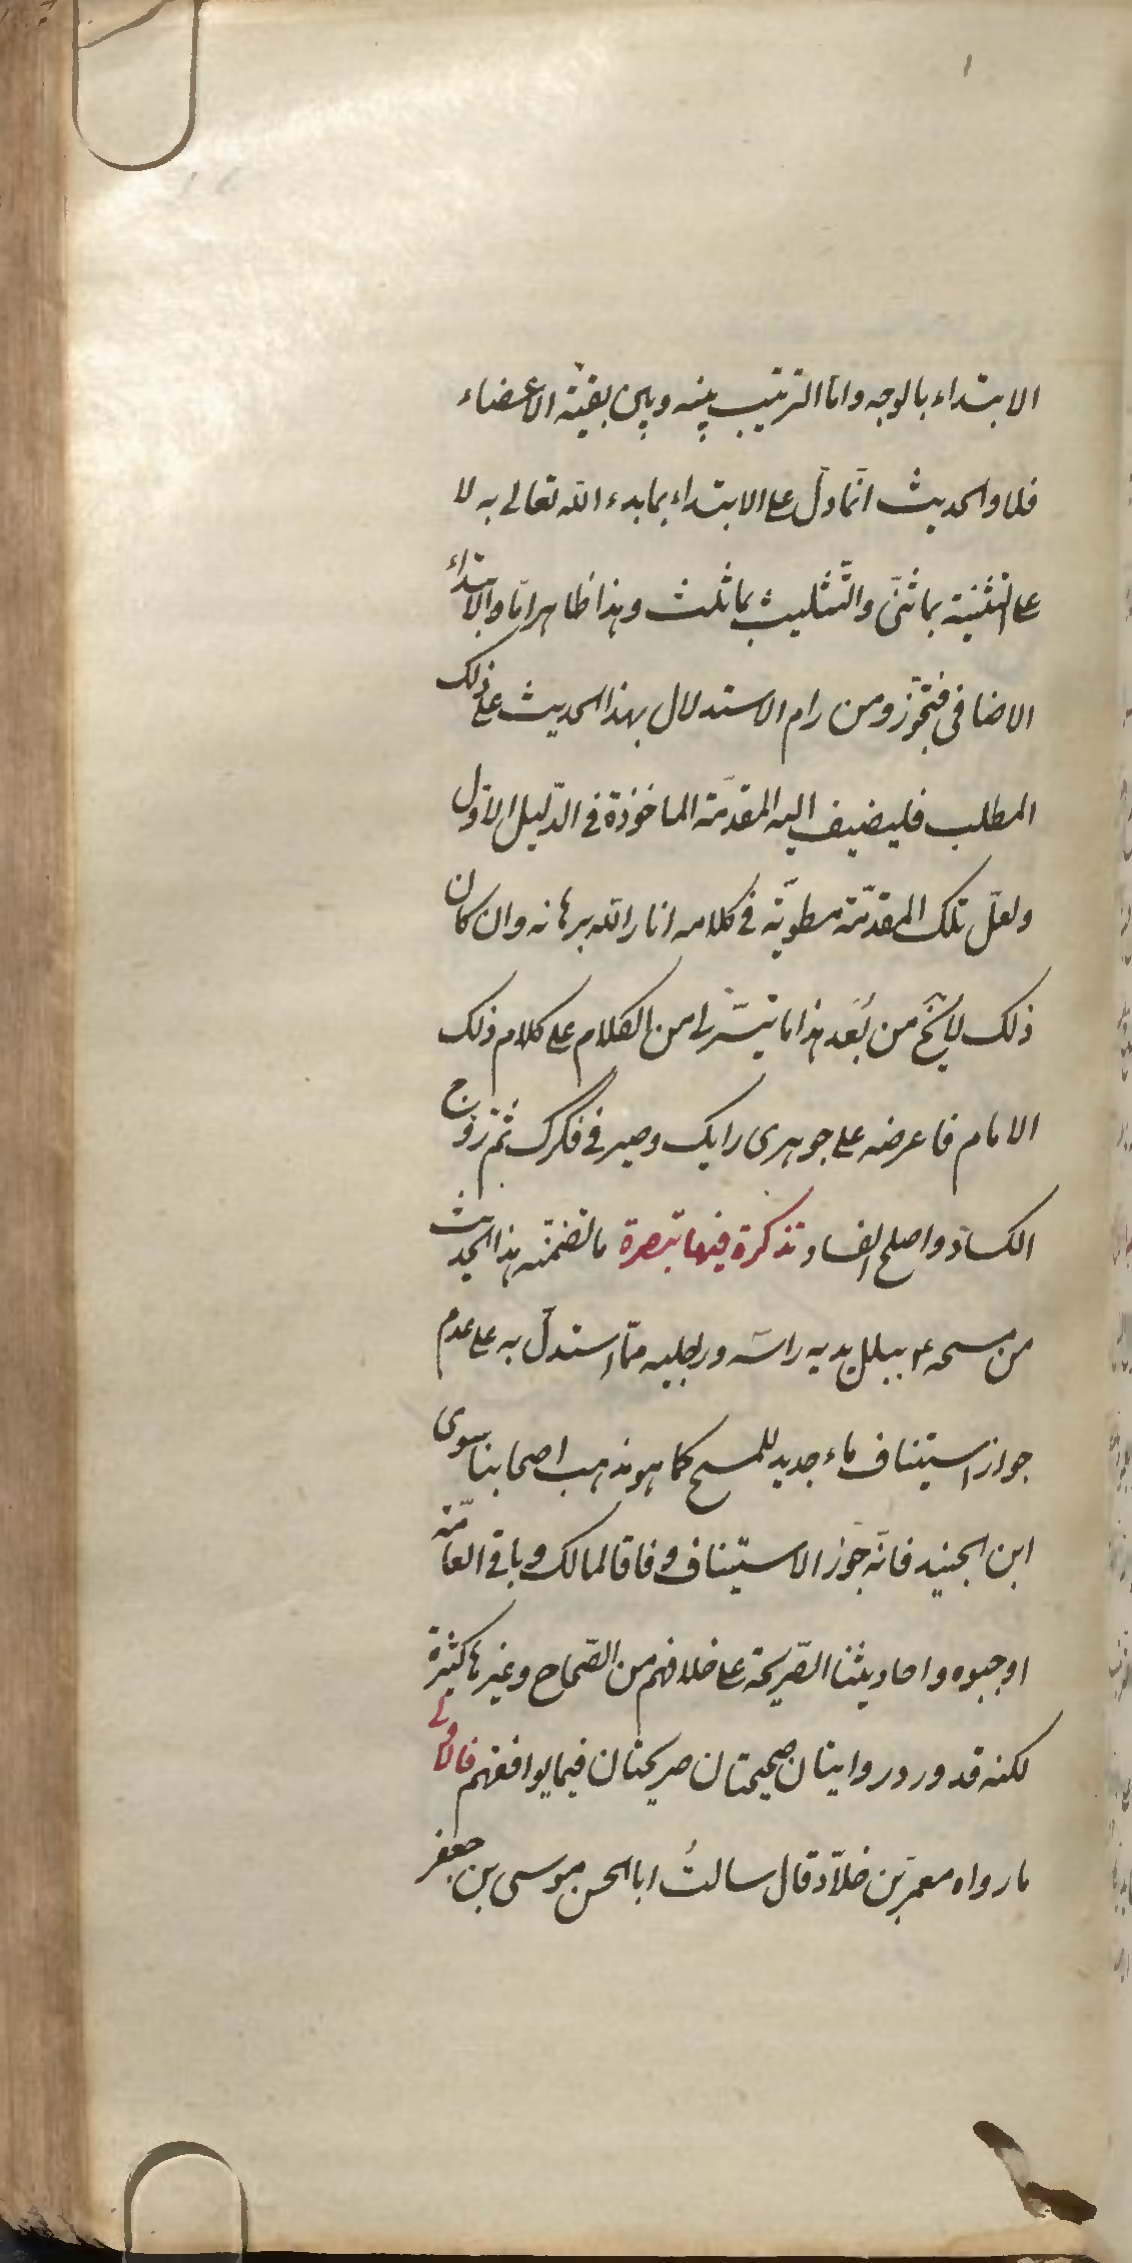 الابتداء بالوجه واما الترتيب بينه وبين بقية الاعضاء
فلا والحديث انّما دلّ على الابتداء بما بدء اللّه تعالى به لا
على التثنية بما ثنّى والتّثليث بما ثلث وهذا ظاهر امّا والابتداء
الاضافى فتجوّز ومن رام الاستدلال بهذا الحديث على ذلك
المطلب فليضيف اليه المقدّمة الماخوذة فى الدّليل الاوّل
ولعلّ تلك المقدّمة مطويّة فى كلامه انار اللّه برهانه وان كان
ذلك لا يخ من بُعد هذا ما تيسّر لى من الكلام على كلام ذلك
الامام فاعرضه على جوهرى رايك وصيرفى فكرك ثم روّج
الكساد واصلح الفساد تذكرة فيها تبصرة ما تضمّنه هذا الحديث
من مسحه ع ببلل يديه راسه ورجليه ممّا استدلّ به على عدم
جواز استيناف ماء جديد للمسح كما هو مذهب اصحابنا سوى
ابن الجنيد فانّه جوّز الاستيناف وفاقا لمالك وباقى العامّة
اوجبوه واحاديثنا الصّريحة على خلافهم من الصّحاح وغيرها كثيرة
لكنه قد ورد روايتان صحيحتان صريحتان فيما يوافقهم فالاولى
ما رواه معمر بن خلّاد قال سالتُ ابا الحسن موسى بن جعفر